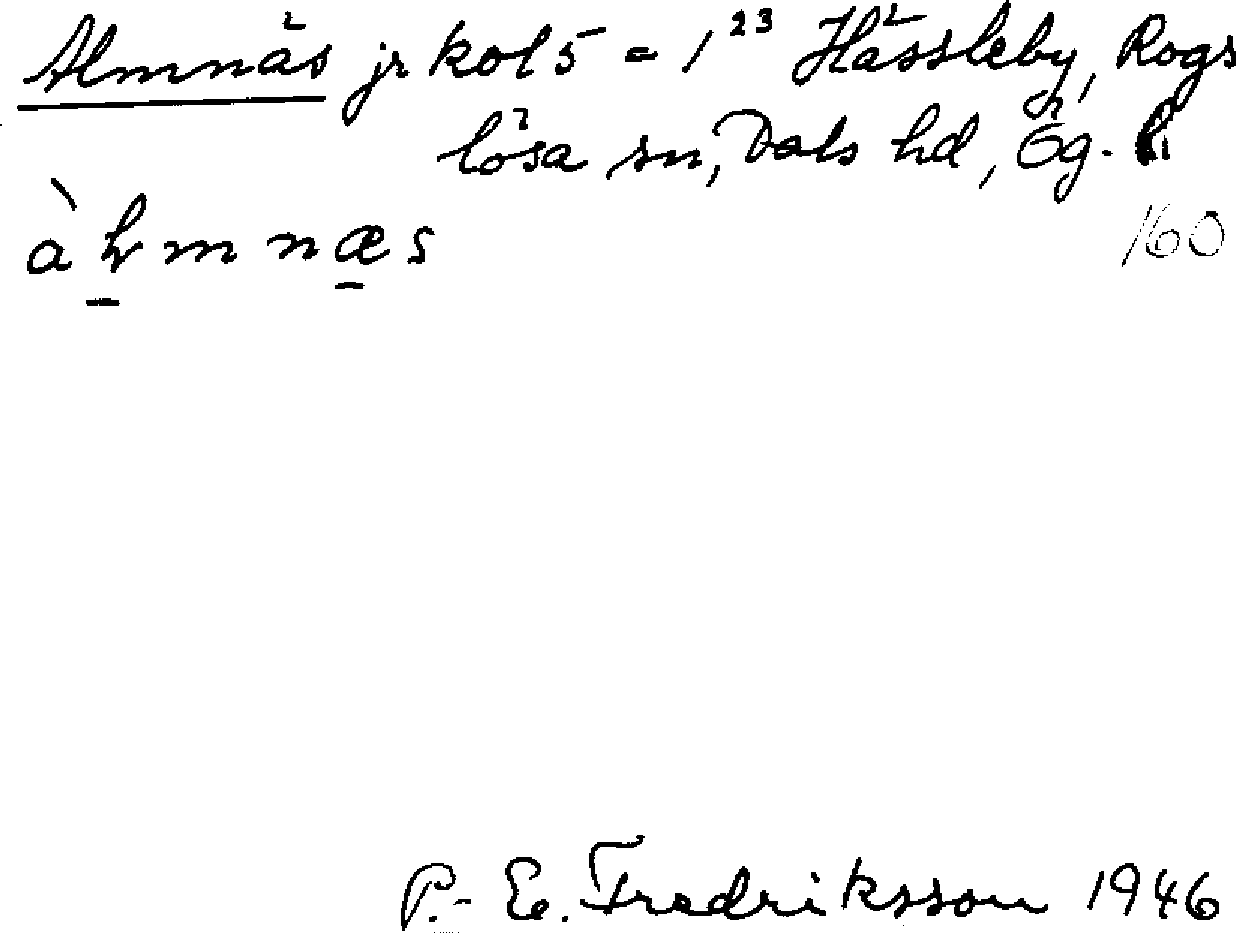 Almnäs jr kol 5 = 1²³ Hässleby, Rogs
lösa sn, Dals hd, Ög. l.
160
P.-E. Fredriksson 1946